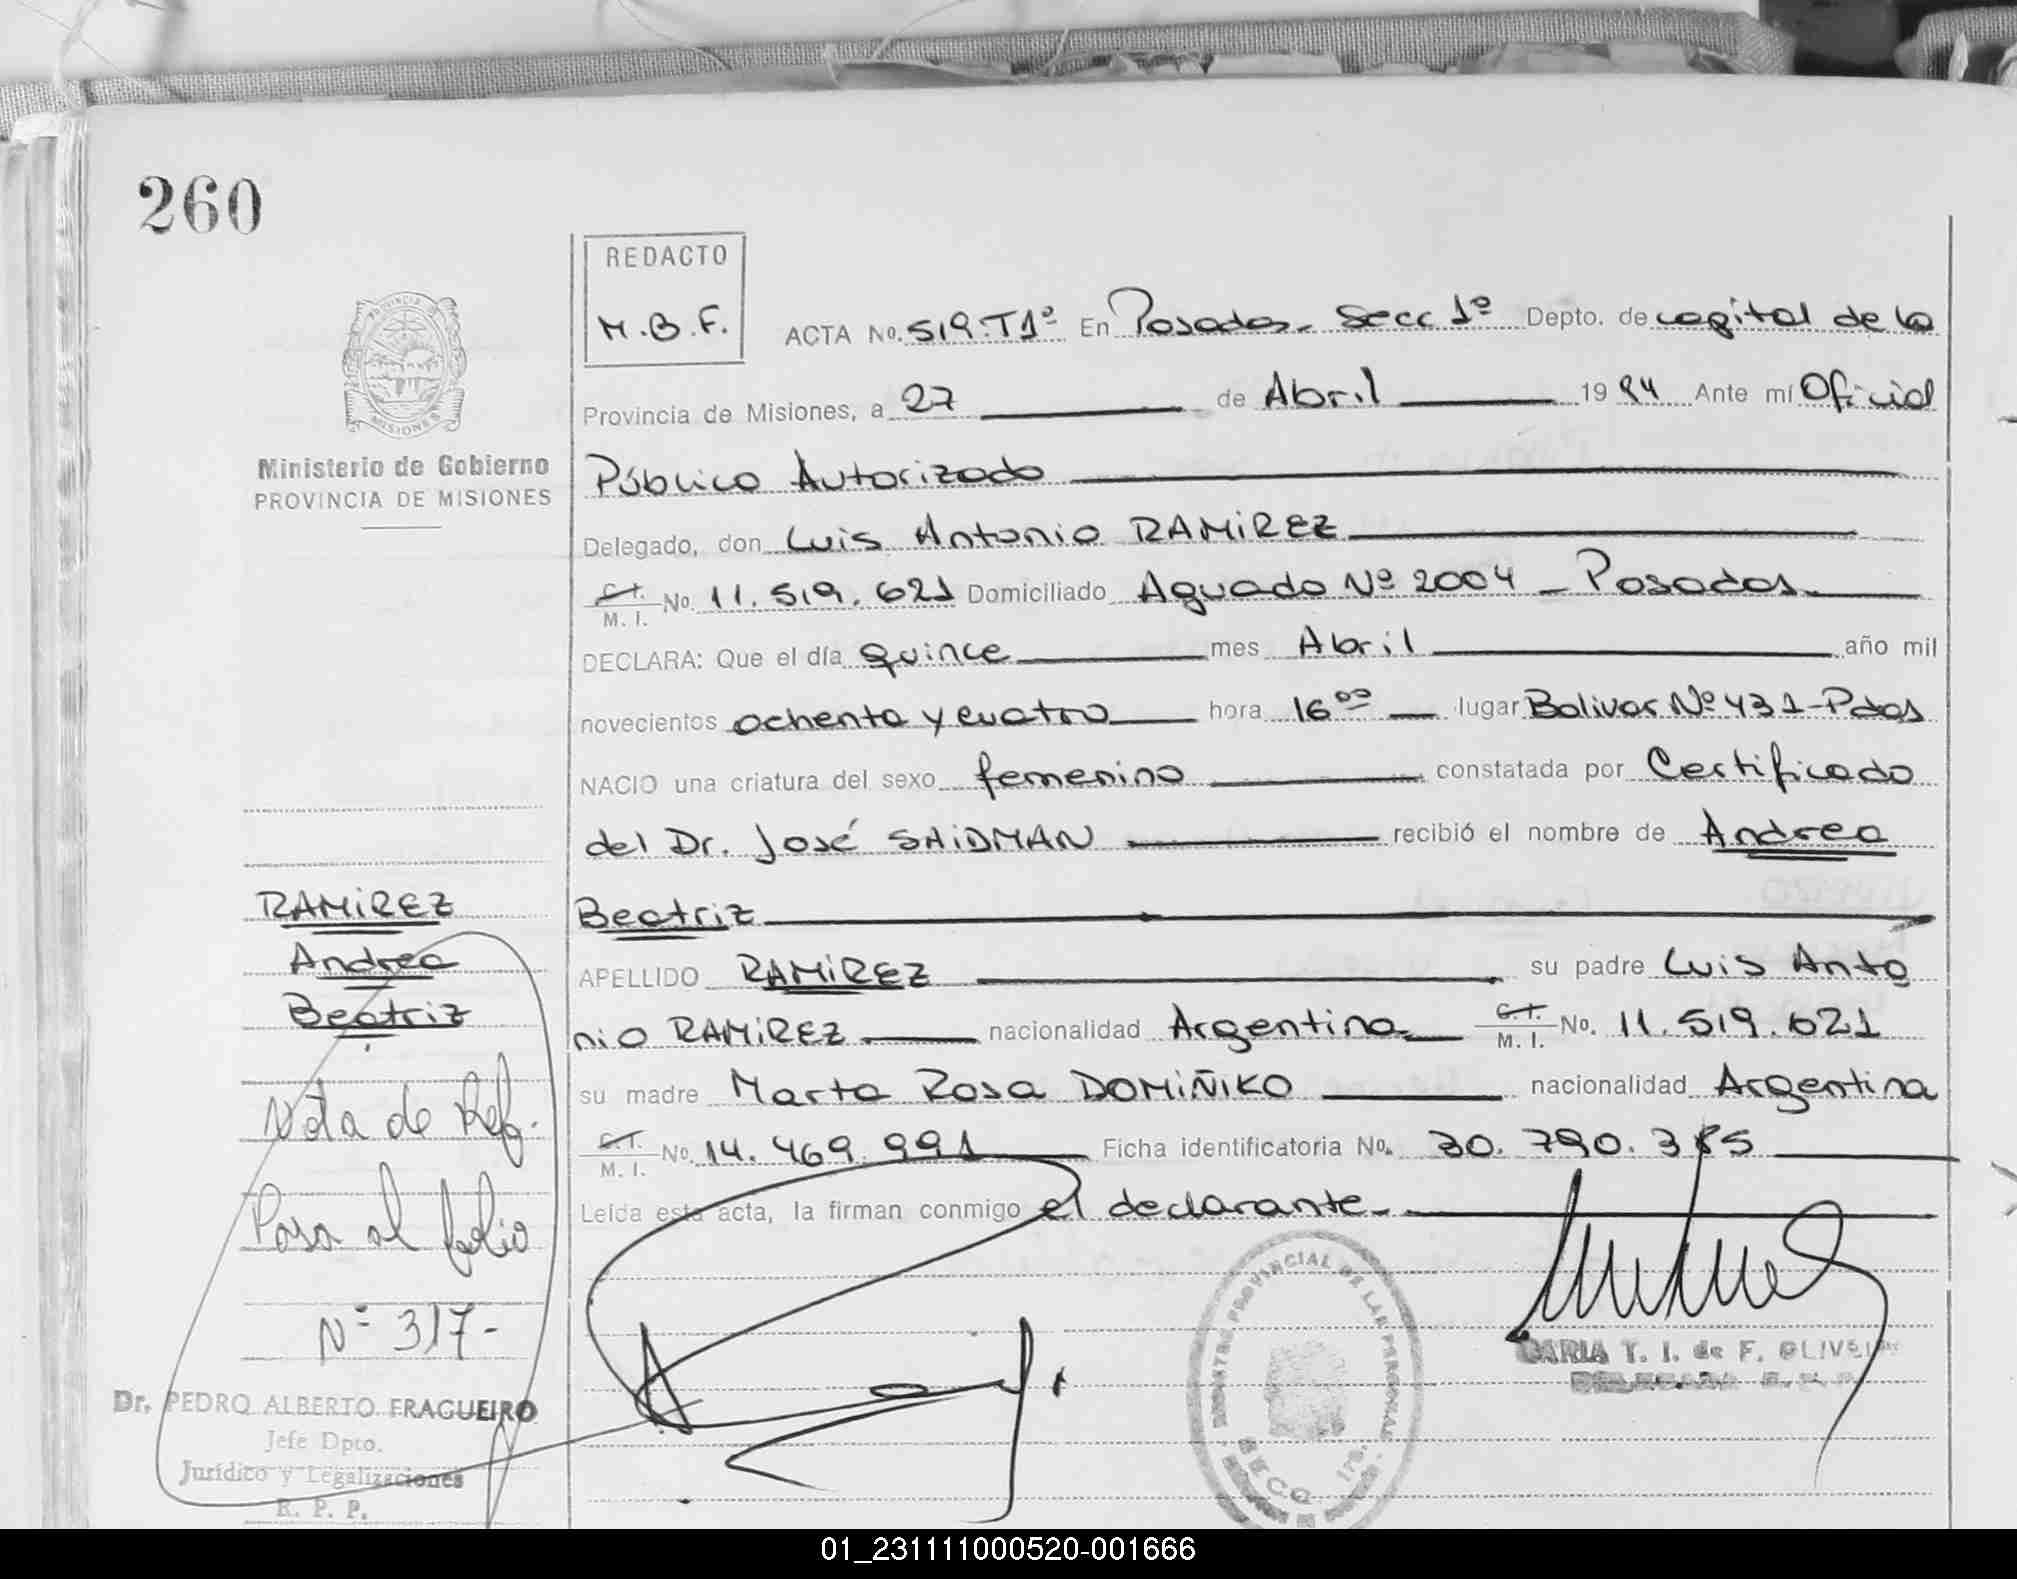 260
PROVINCIA
MISIONES
Ministerio de Gobierno
PROVINCIA DE MISIONES
RAMIREZ
Andrea
Beatriz
Nota de Ref.
Pasa al folio
Nº 317-
Dr. PEDRO ALBERTO FRAGUEIRO
Jefe Dpto.
Jurídico y Legalizaciones
R. P. P.
REDACTO
M.B.F.
ACTA No. 519.T1º En Posadas. Secc 1º Depto. de capital de la
Provincia de Misiones, a 27 de Abril 1984 Ante mí Oficial
Público Autorizado
Delegado, don Luis Antonio RAMIREZ
C.I. M. I. No. 11.519.621 Domiciliado Aguado Nº 2004 - Posadas
DECLARA: Que el día quince mes Abril año mil
novecientos ochenta y cuatro hora 16 00 lugar Bolivar Nº 431-Pdas
NACIO una criatura del sexo femenino constatada por Certificado
del Dr. José SAIDMAN recibió el nombre de Andrea
Beatriz
APELLIDO RAMIREZ su padre Luis Anto
nio RAMIREZ nacionalidad Argentina C.I. M. I. No. 11.519.621
su madre Marta Rosa DOMIÑIKO nacionalidad Argentina
C.I. M. I. No. 14.469.991 Ficha identificatoria No. 30.790.385
Leída esta acta, la firman conmigo el declarante.
REGISTRO PROVINCIAL DE LAS PERSONAS
SECC. 1ra.
MARIA T. I. de F. OLIVEIRA
01_231111000520-001666